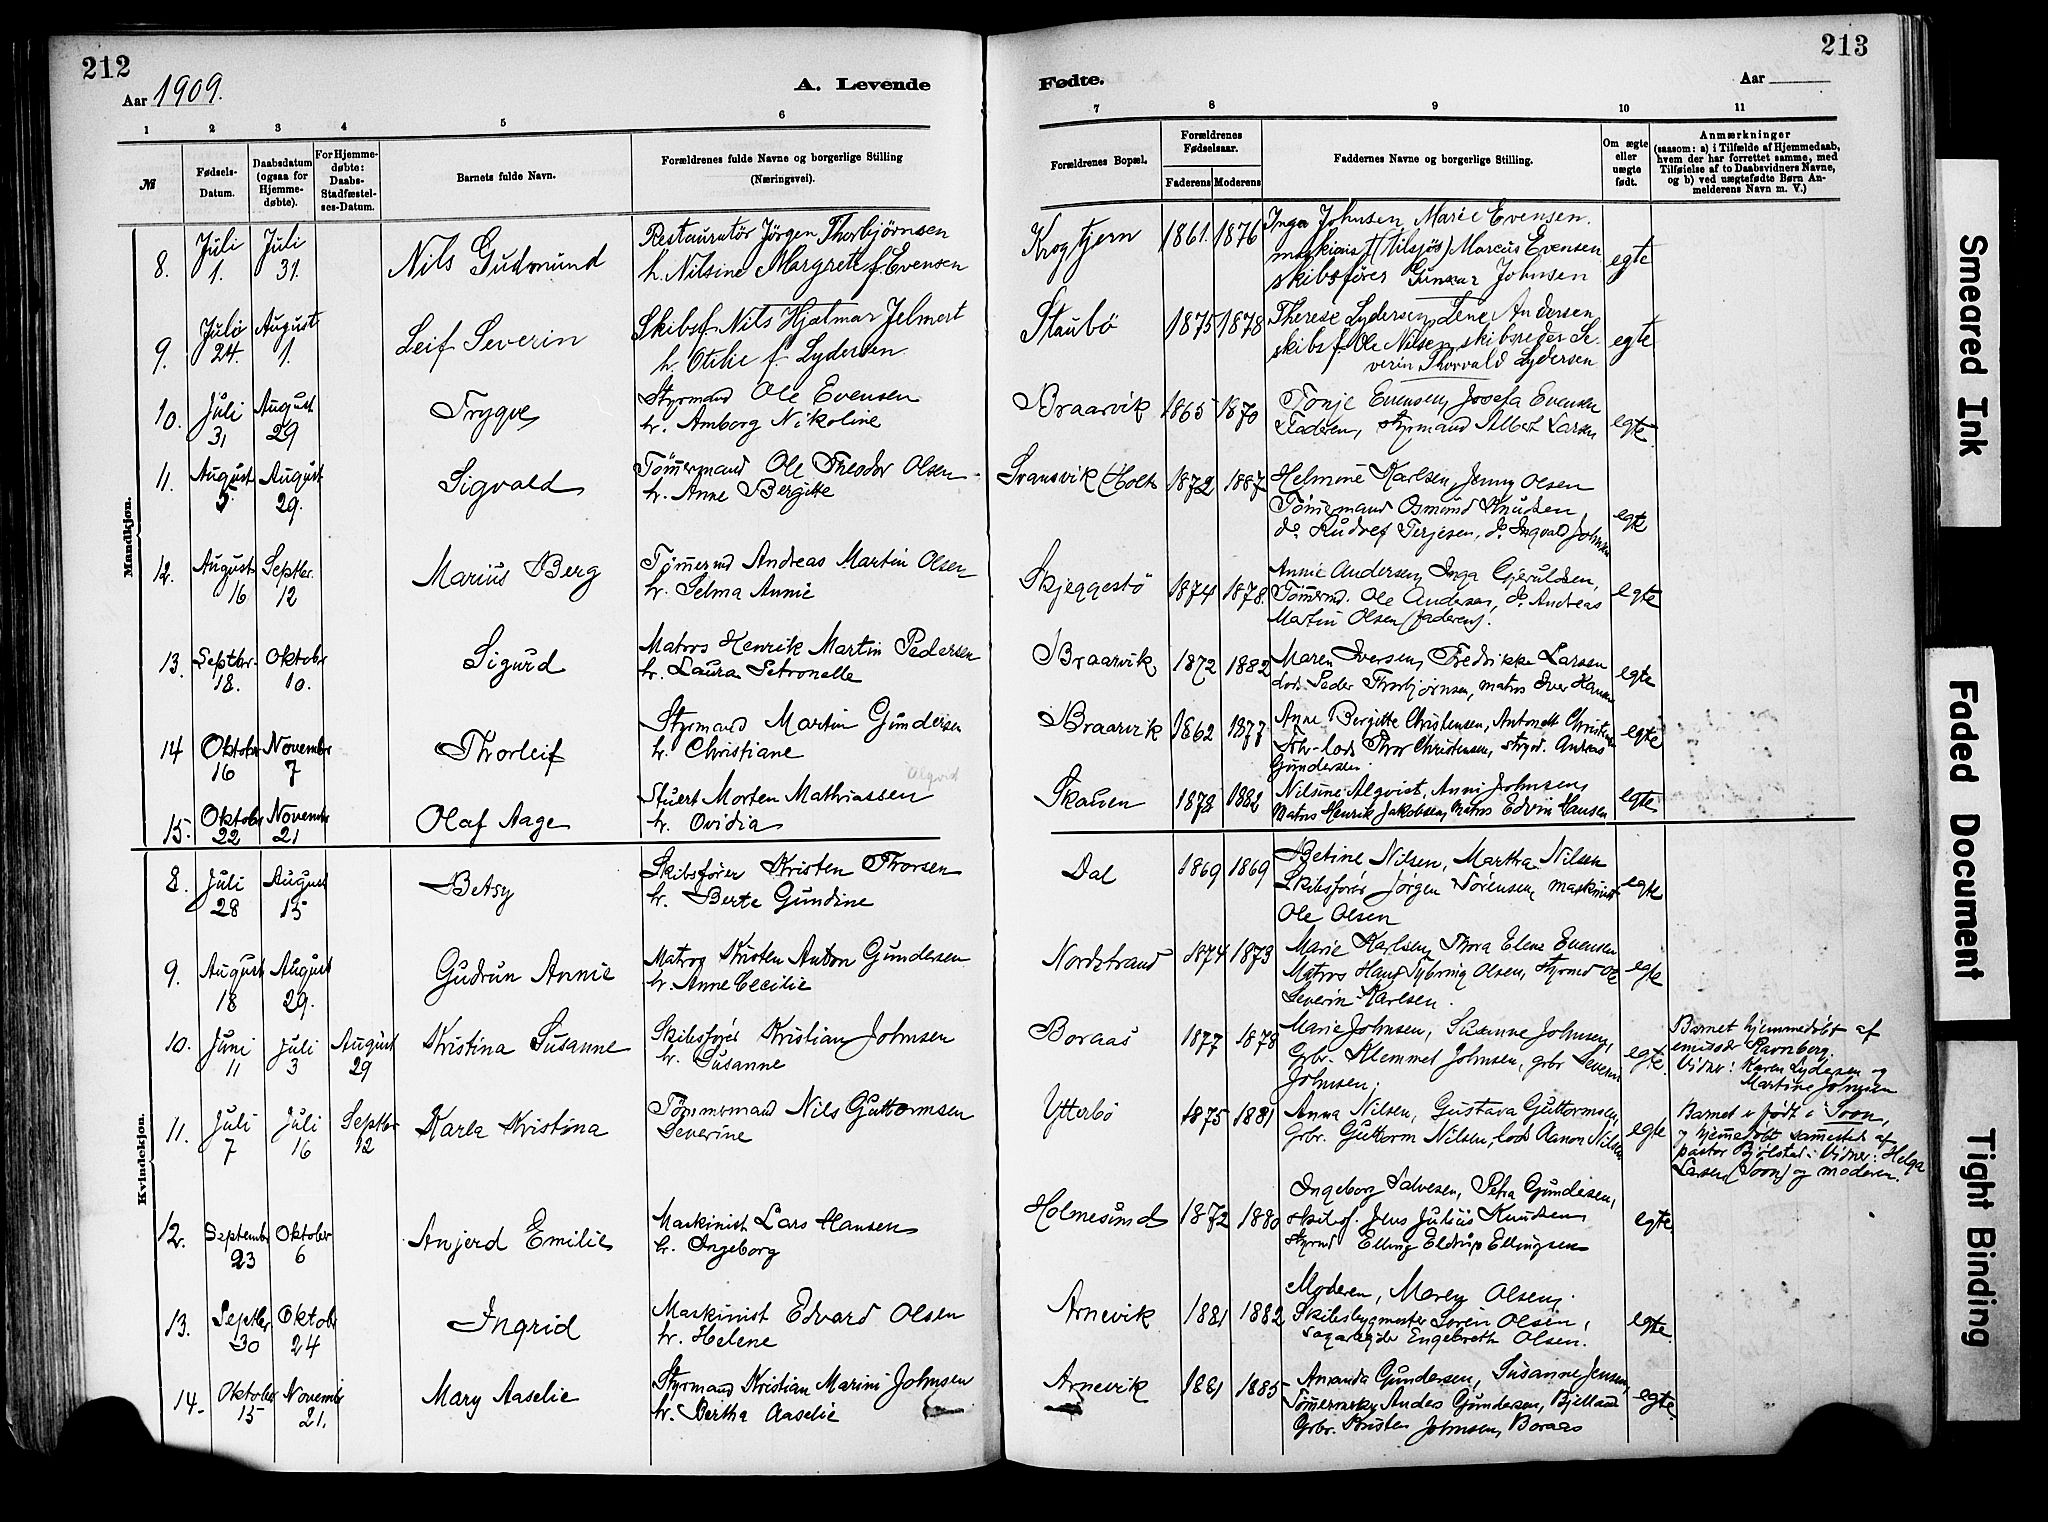 212
Aar 1909.
A. Levende
1 2 3 4 5 6
№
Fødsels-Datum.
Daabsdatum (ogsaa for Hjemme-døbte).
For Hjemme-døbte: Daabs-Stadfæstel-ses-Datum.
Barnets fulde Navn.
Forældrenes fulde Navne og borgerlige Stilling (Næringsvei).
Mandkjøn.
8. Juli 1. Juli 31. Nils Gudmund
Restauratør Jörgen Thorbjørnsen
h. Nilsine Margrete f. Evensen
9. Juli 24. August 1. Leif Severin
Skibsf. Nils Hjalmar Jelmert
h. Otilie f. Lydersen
10. Juli 31 August 29 Trygve
Styrmand Ole Evensen
h. Amborg Nikoline
11. August 5 August 29. Sigvald
Tömmermand Ole Theodor Olsen
h. Anne Bergitte
12. August 16 Septbr. 12 Marius Berg
Tømmermd Andreas Martin Olsen
h. Selma Annie
13 Septbr. 18. Oktober 10. Sigurd
Matros Henrik Martin Pedersen
h. Laura Petronelle
14 Oktober 16 November 7 Thorleif
Styrmand Martin Gundersen
h. Christiane
15. Oktober 22 November 21 Olaf Aage
Stuert Morten Mathiassen
h. Ovidia
Kvindekjøn.
8. Juli 28 August 15 Betsy
Skibsfører Kristen Thorsen
h. Berte Gundine
9. August 18 August 29. Gudrun Annie
Matros Kristen Anton Gundersen
h. Anne Cecilie
10. Juni 11 Juli 3 August 29 Kristina Susanne
Skibsfører Kristian Johnsen
h. Susanne
11. Juli 7 Juli 16 Septbr 12 Karla Kristina
Tömmermand Nils Guttormsen
Severine
12. September 23 Oktober 6 Anjerd Emilie
Maskinist Lars Hansen
h. Ingeborg
13. Septbr 30 Oktober 24 Ingrid
Maskinist Edvard Olsen
h. Helene
14. Oktober 15 November 21. Mary Aaselie
Styrmand Kristian Marini Johnsen
h. Bertha Aaselie
213
Fødte.
Aar
7 8 9 10 11
Forældrenes Bopæl.
Forældrenes Fødselsaar.
Faderens Moderens
Faddernes Navne og borgerlige Stilling.
Om ægte eller uægte født.
Anmærkninger
(saasom: a) i Tilfælde af Hjemmedaab,
hvem der har forrettet samme, med
Tilføielse af to Daabsvidners Navne,
og b) ved uægtefødte Børn An-
melderens Navn m. V.)
Krogtjern 1861. 1876 Inga Johnsen Marie Evensen
maskinist (Nilsjøs) Marcus Evensen
skibsfører Gunnar Johnsen egte
Staubø 1875 1878 Therese Lydersen, Lene Andersen
skibsf. Ole Nilsen skibsreder Se-
verin Thorvald Lydersen egte
Braarvik 1865 1870 Tonje Evensen, Josefa Evensen
Faderen, styrmand Albert Larsen egte.
Svansvik (Holt 1872 1887 Helmine Karlsen, Jenny Olsen
Tömmermand Osmund Knudsen,
do. Rudolf Terjesen, do. Ingvald Johnsen egte
Skjeggestö 1874 1878. Annie Andersen, Inga Gjeruldsen,
Tömmermd. Ole Andersen, do. Andreas
Martin Olsen (faderen). egte
Braarvik 1872 1882 Maren Iversen, Fredrikke Larsen
lods Peder Thorbjørnsen, matros Iver Hansen egte
Braarvik 1862 1877 Anne Bergitte Christensen, Antonette Christensen
lods Thor Christensen, styrmd. Andreas
Gundersen. egte
Skauen 1878 1882 Nilsine Alqvist, Anni Johnsen,
Matros Henrik Jakobsen, Matros Edvin Hansen egte
Dal 1869 1869 Betine Nilsen, Martha Nilsen
Skibsfører Jörgen Sörensen, maskinist
Ole Olsen egte
Nordstrand 1874 1873 Marie Karlsen, Thora Elene Evensen
Matros Hans Tybring Olsen, styrmd Ole
Severin Karlsen. egte
Boraas 1877 1878 Marie Johnsen, Susanne Johnsen,
Grbr. Klemmet Johnsen, grbr Severin
Johnsen. egte.
Barnet hjemmedøbt af
emissær Ravnberg.
Vidner: Karen Lydersen og
Martine Johnsen
Ytterbö 1875 1881 Anna Nilsen, Gustava Guttormsen,
Grbr. Guttorm Nilsen, lods Aanon Nilsen egte
Barnet er født i Soon,
og hjemmedøbt sammested af
pastor Bjölstad. Vidner: Helga
Larsen (Soon) og moderen.
Holmesund 1872 1880 Ingeborg Salvesen, Petra Gundersen,
skibsf. Jens Julius Knudsen,
styrmd Elling Eldrup Ellingsen egte.
Arnevik 1881 1882 Moderen, Maren Olsen,
Skibsbygmester Sören Olsen,
Engebreth Olsen. egte.
Arnevik 1881 1885 Amanda Gundersen, Susanne Jensen,
Andes Gundersen, Bjelland
Grbr. Kristen Johnsen, Boraas egte.
Smeared Ink
Faded Document
Tight Binding